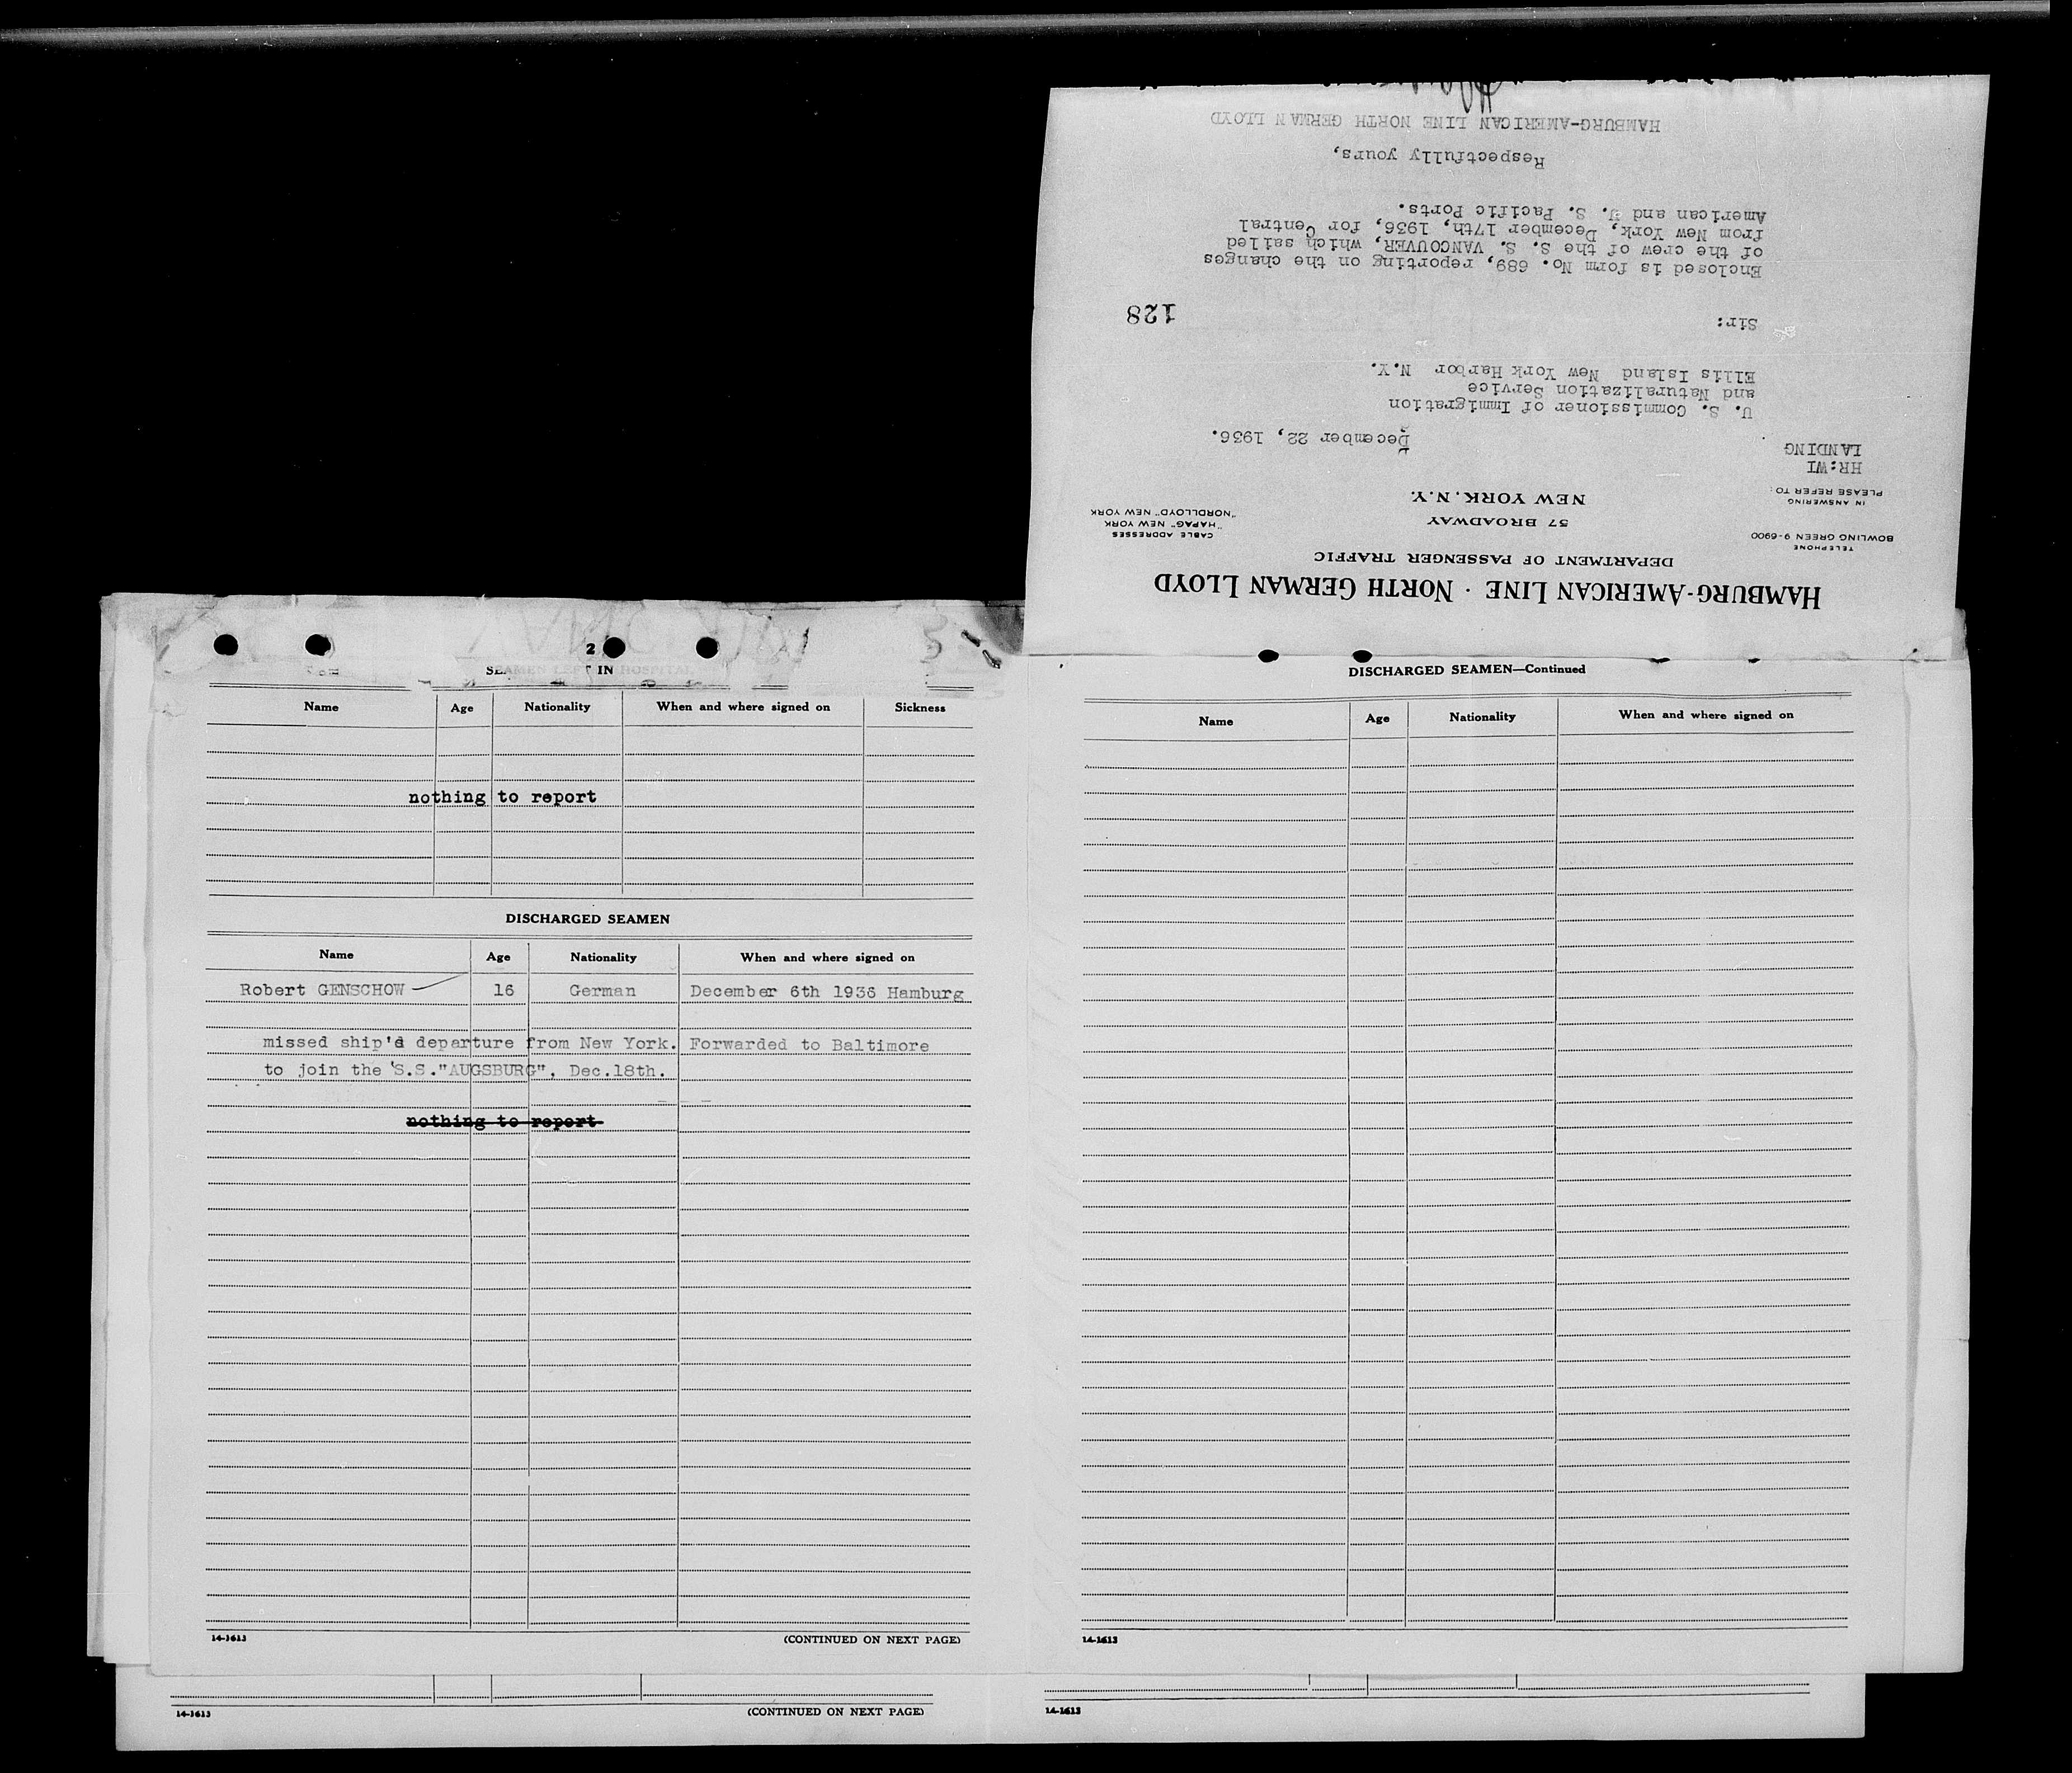 2
SEAMEN LEFT IN HOSPITAL
Name Age Nationality When and where signed on Sickness
nothing to report
DISCHARGED SEAMEN
Name Age Nationality When and where signed on
Robert GENSCHOW 16 German December 6th 1936 Hamburg
missed ship's departure from New York. Forwarded to Baltimore
to join the S.S."AUGSBURG", Dec.18th.
nothing to report
14-1613 (CONTINUED ON NEXT PAGE)
14-1613 (CONTINUED ON NEXT PAGE)
HAMBURG-AMERICAN LINE · NORTH GERMAN LLOYD
DEPARTMENT OF PASSENGER TRAFFIC
57 BROADWAY
NEW YORK, N.Y.
TELEPHONE
BOWLING GREEN 9-6900
CABLE ADDRESSES
"HAPAG" NEW YORK
"NORDLLOYD" NEW YORK
IN ANSWERING
PLEASE REFER TO:
HR:WI
LANDING
December 22, 1936.
U. S. Commissioner of Immigration
and Naturalization Service
Ellis Island New York Harbor N.Y.
Sir:
128
Enclosed is form No. 689, reporting on the changes
of the crew of the S. S. VANCOUVER, which sailed
from New York, December 17th, 1936, for Central
American and U. S. Pacific Ports.
Respectfully yours,
HAMBURG-AMERICAN LINE NORTH GERMAN LLOYD
DISCHARGED SEAMEN—Continued
Name Age Nationality When and where signed on
14-1613
14-1613